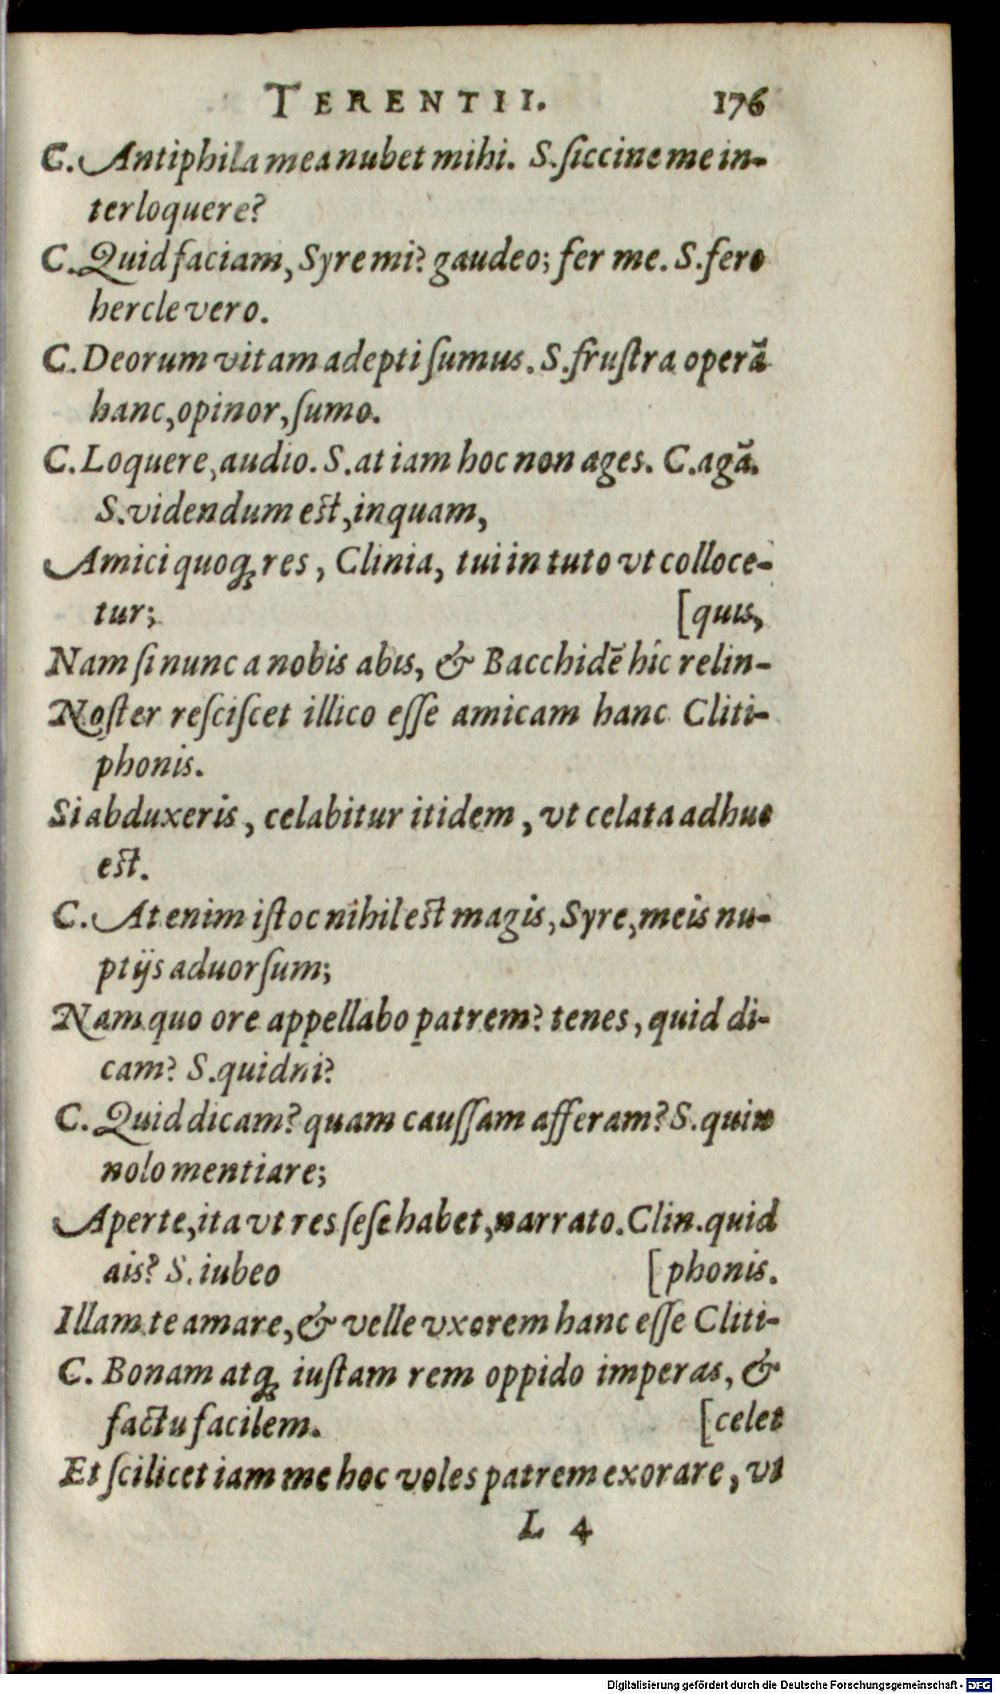 TERENTII. 176
C. Antiphila mea nubet mihi. S. ſiccine me in-
terloquere?
C. Quid faciam, Syre mi? gaudeo; fer me. S. fero
hercle vero.
C. Deorum vitam adepti ſumus. S. fruſtra operã
hanc, opinor, ſumo.
C. Loquere, audio. S. at iam hoc non ages. C. agã.
S. videndum eſt, inquam,
Amici quoq; res, Clinia, tui in tuto vt colloce-
tur; [quis,
Nam ſi nunc a nobis abis, & Bacchidẽ hic relin-
Noſter reſciſcet illico eſſe amicam hanc Cliti-
phonis.
Si abduxeris, celabitur itidem, vt celata adhuc
eſt.
C. At enim iſtoc nihil eſt magis, Syre, meis nu-
ptijs aduorſum;
Nam quo ore appellabo patrem? tenes, quid di-
cam? S. quidni?
C. Quid dicam? quam cauſſam afferam? S. quin
nolo mentiare;
Aperte, ita vt res ſeſe habet, narrato. Clin. quid
ais? S. iubeo [phonis.
Illam te amare, & velle vxorem hanc eſſe Cliti-
C. Bonam atq; iuſtam rem oppido imperas, &
factu facilem. [celet
Et ſcilicet iam me hoc voles patrem exorare, vt
L 4
Digitalisierung gefördert durch die Deutsche Forschungsgemeinschaft - DFG